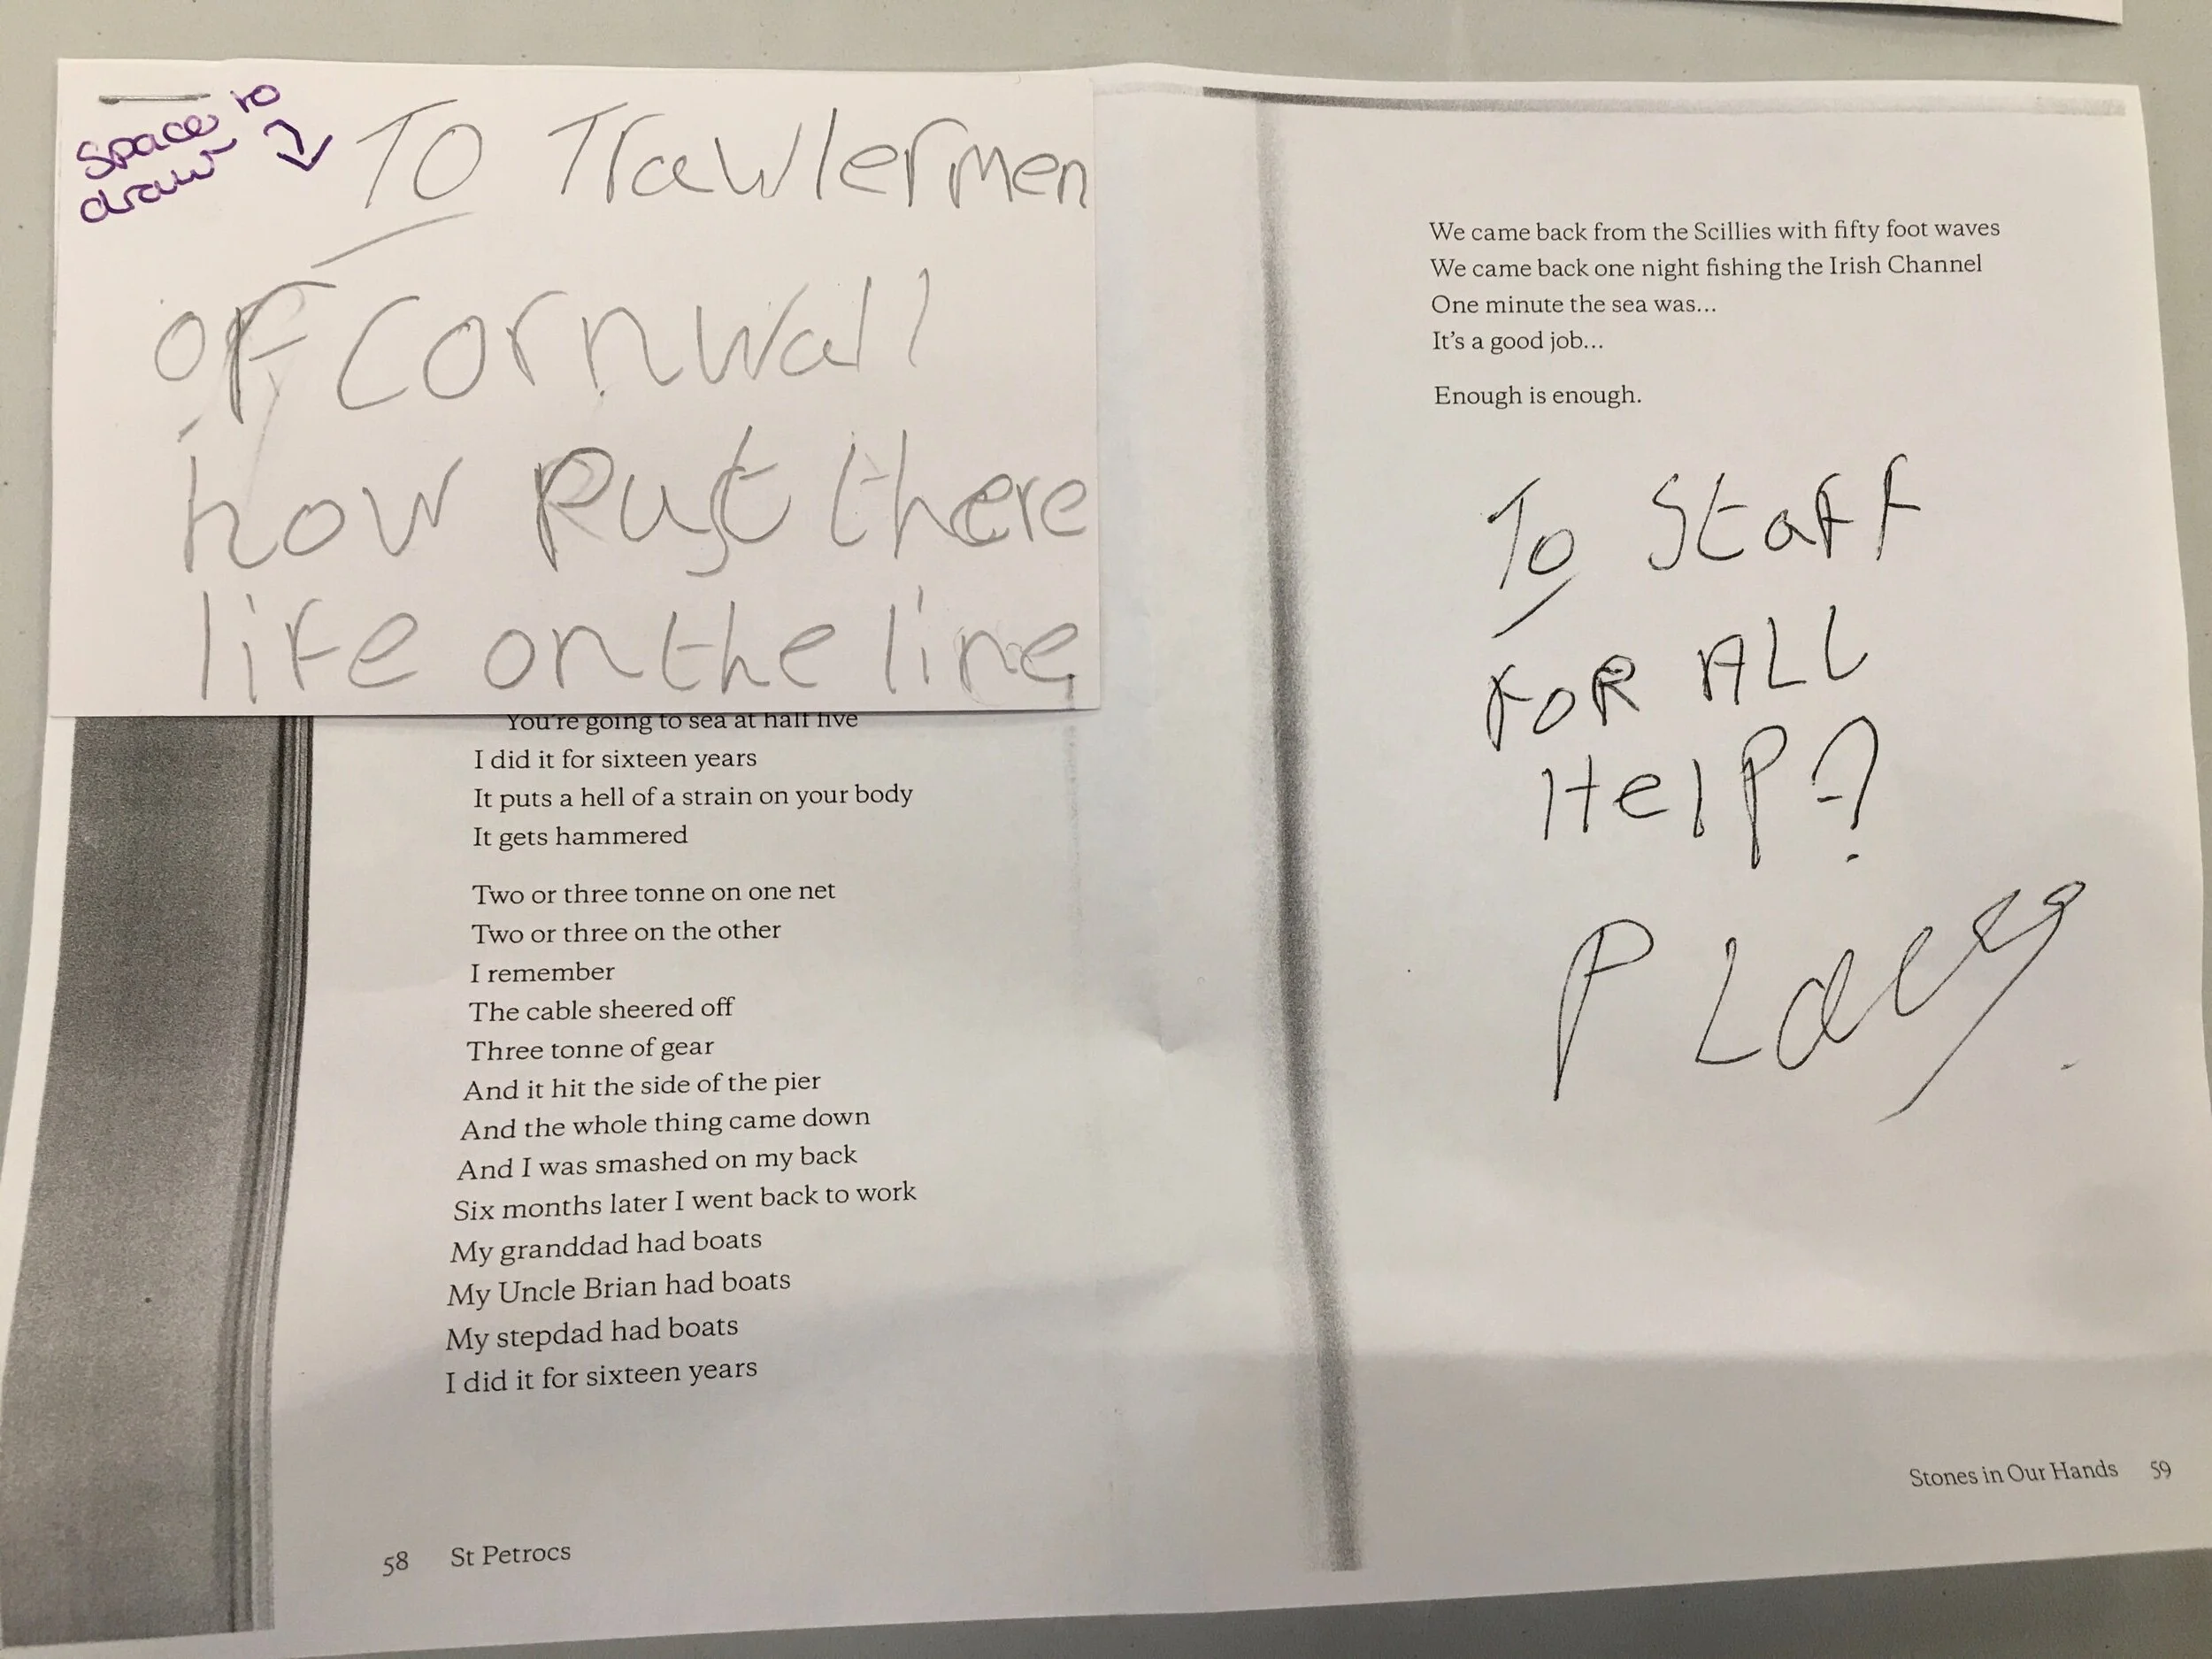 space to
draw
To Trawlermen
of cornwall
how Put there
life on the line
You're going to sea at half five
I did it for sixteen years
It puts a hell of a strain on your body
It gets hammered
Two or three tonne on one net
Two or three on the other
I remember
The cable sheered off
Three tonne of gear
And it hit the side of the pier
And the whole thing came down
And I was smashed on my back
Six months later I went back to work
My granddad had boats
My Uncle Brian had boats
My stepdad had boats
I did it for sixteen years
58 St Petrocs
We came back from the Scillies with fifty foot waves
We came back one night fishing the Irish Channel
One minute the sea was...
It's a good job...
Enough is enough.
To Staff
FOR ALL
HelP?
Stones in Our Hands 59